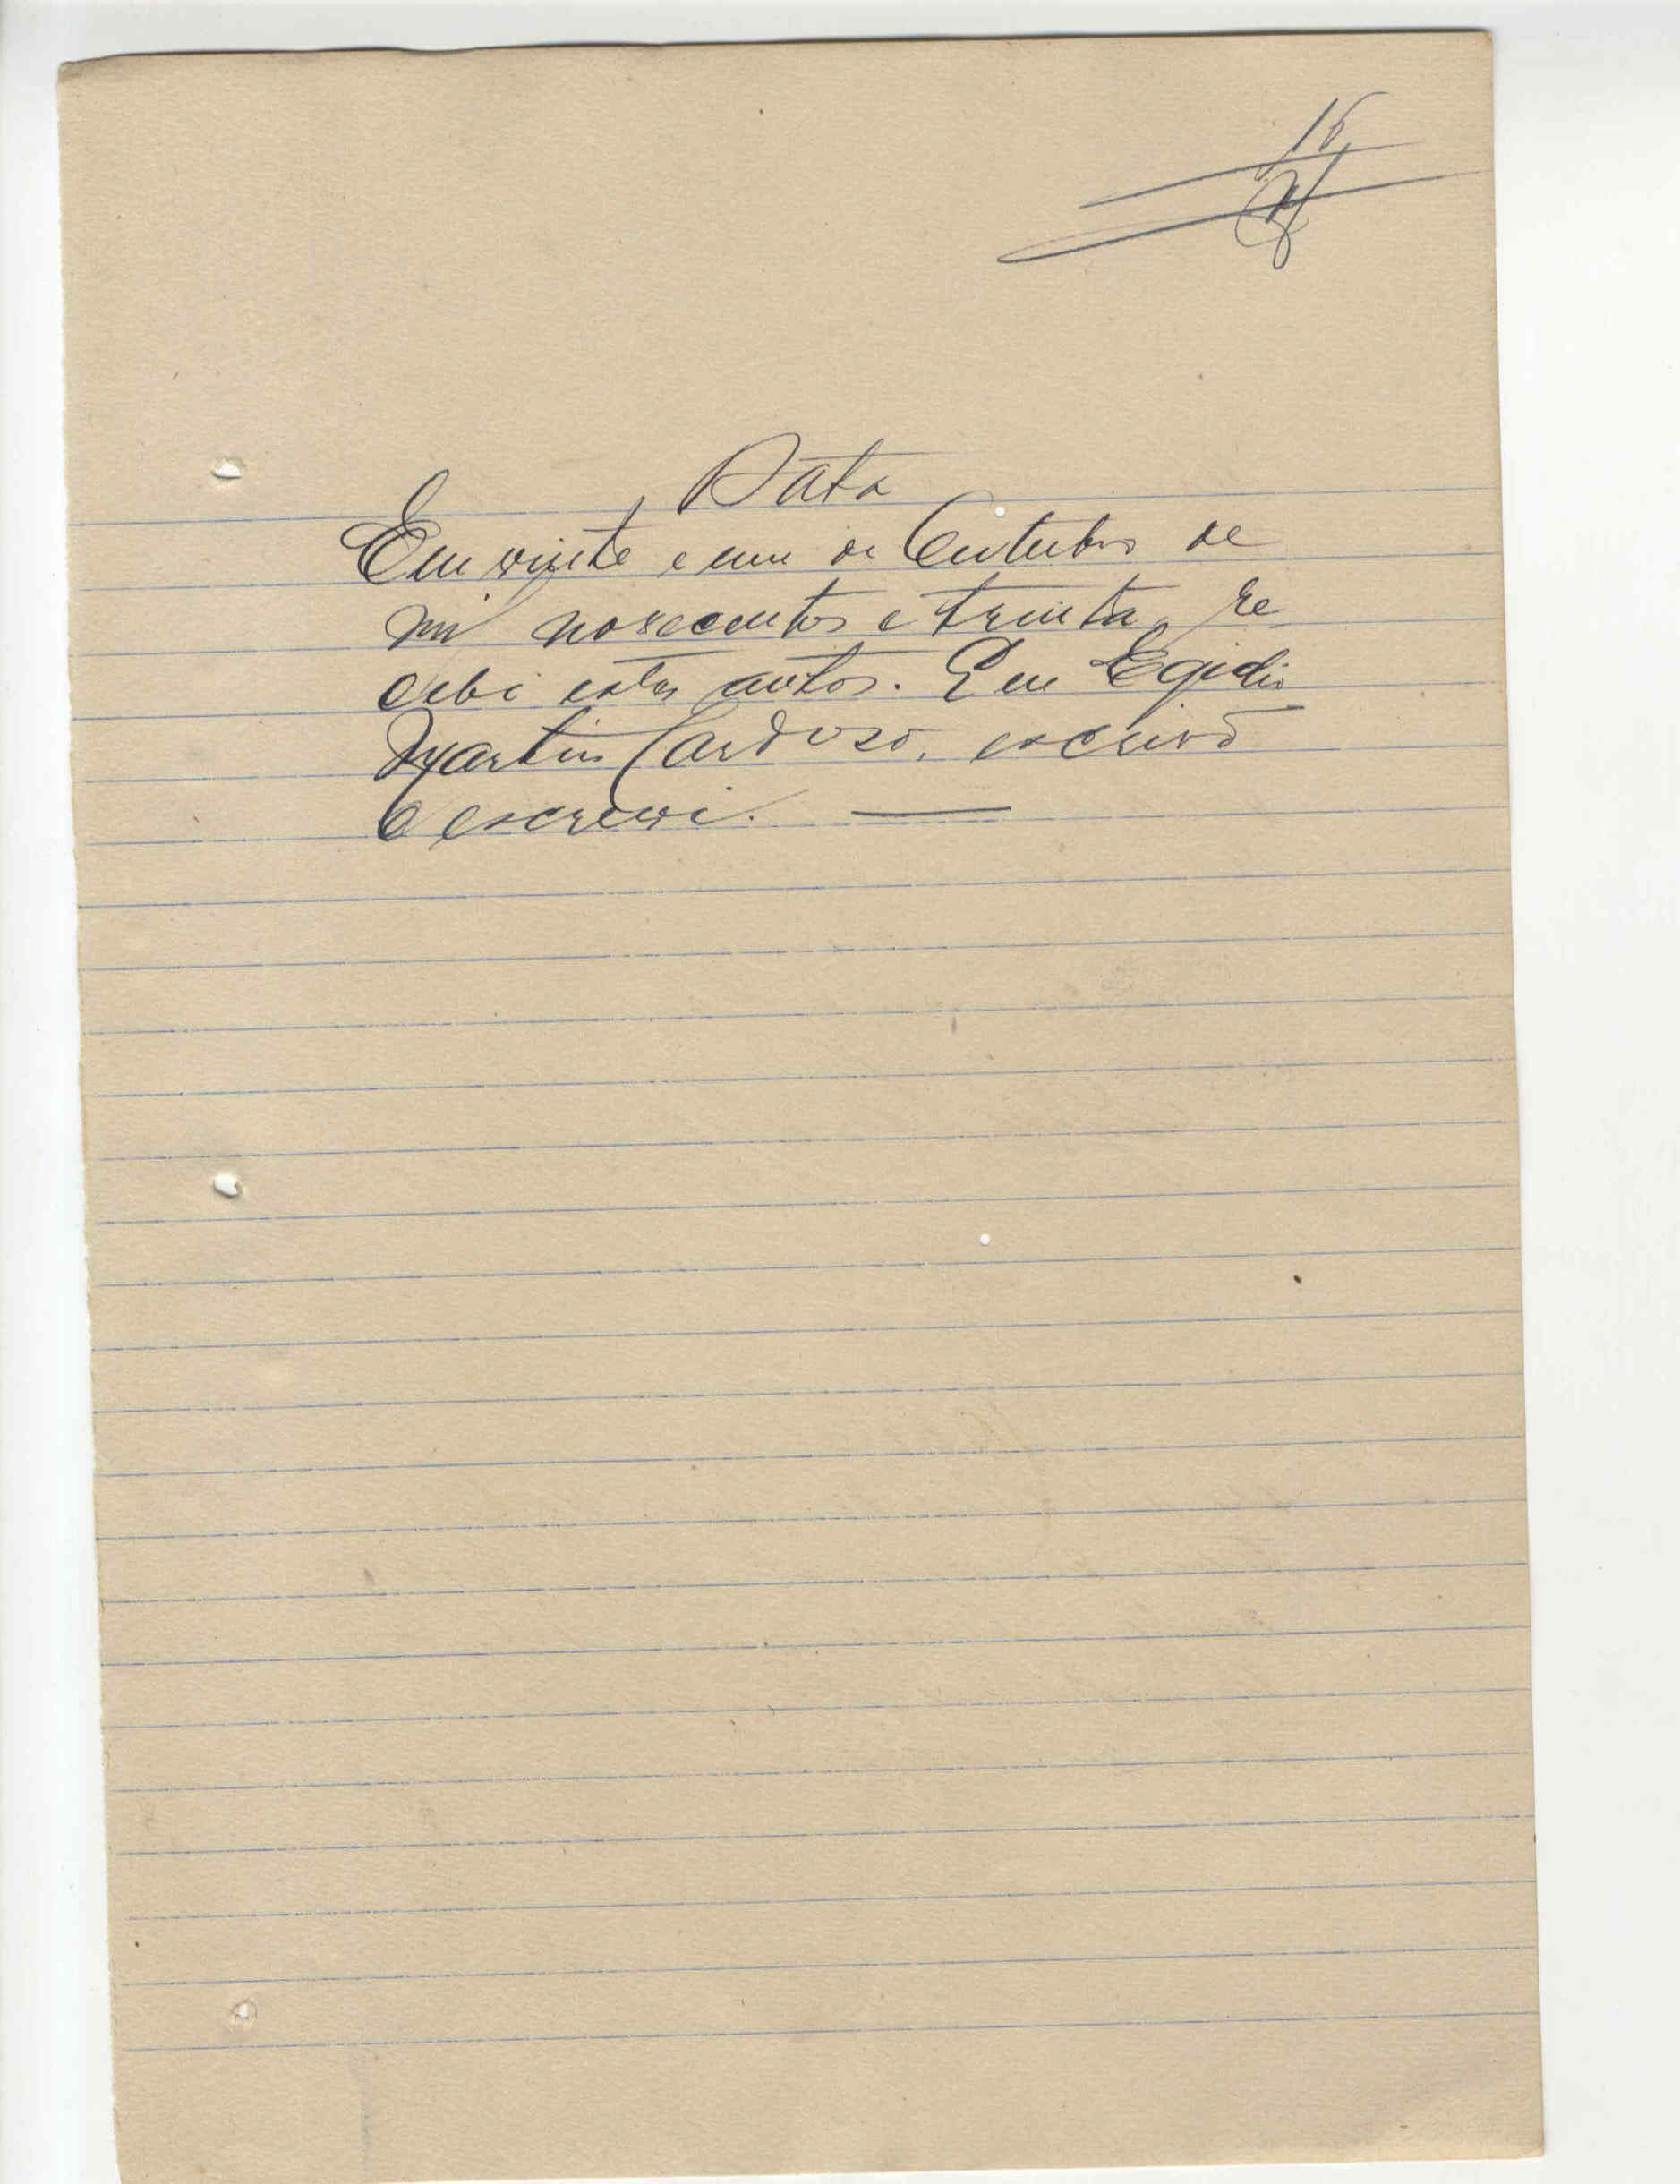 16
Data
Em vinte e um de Outubro de
mil novecentos e trinta, re
cebi estes autos. Eu Egidio
Martins Cardoso, escrivõ
o escrevi. —